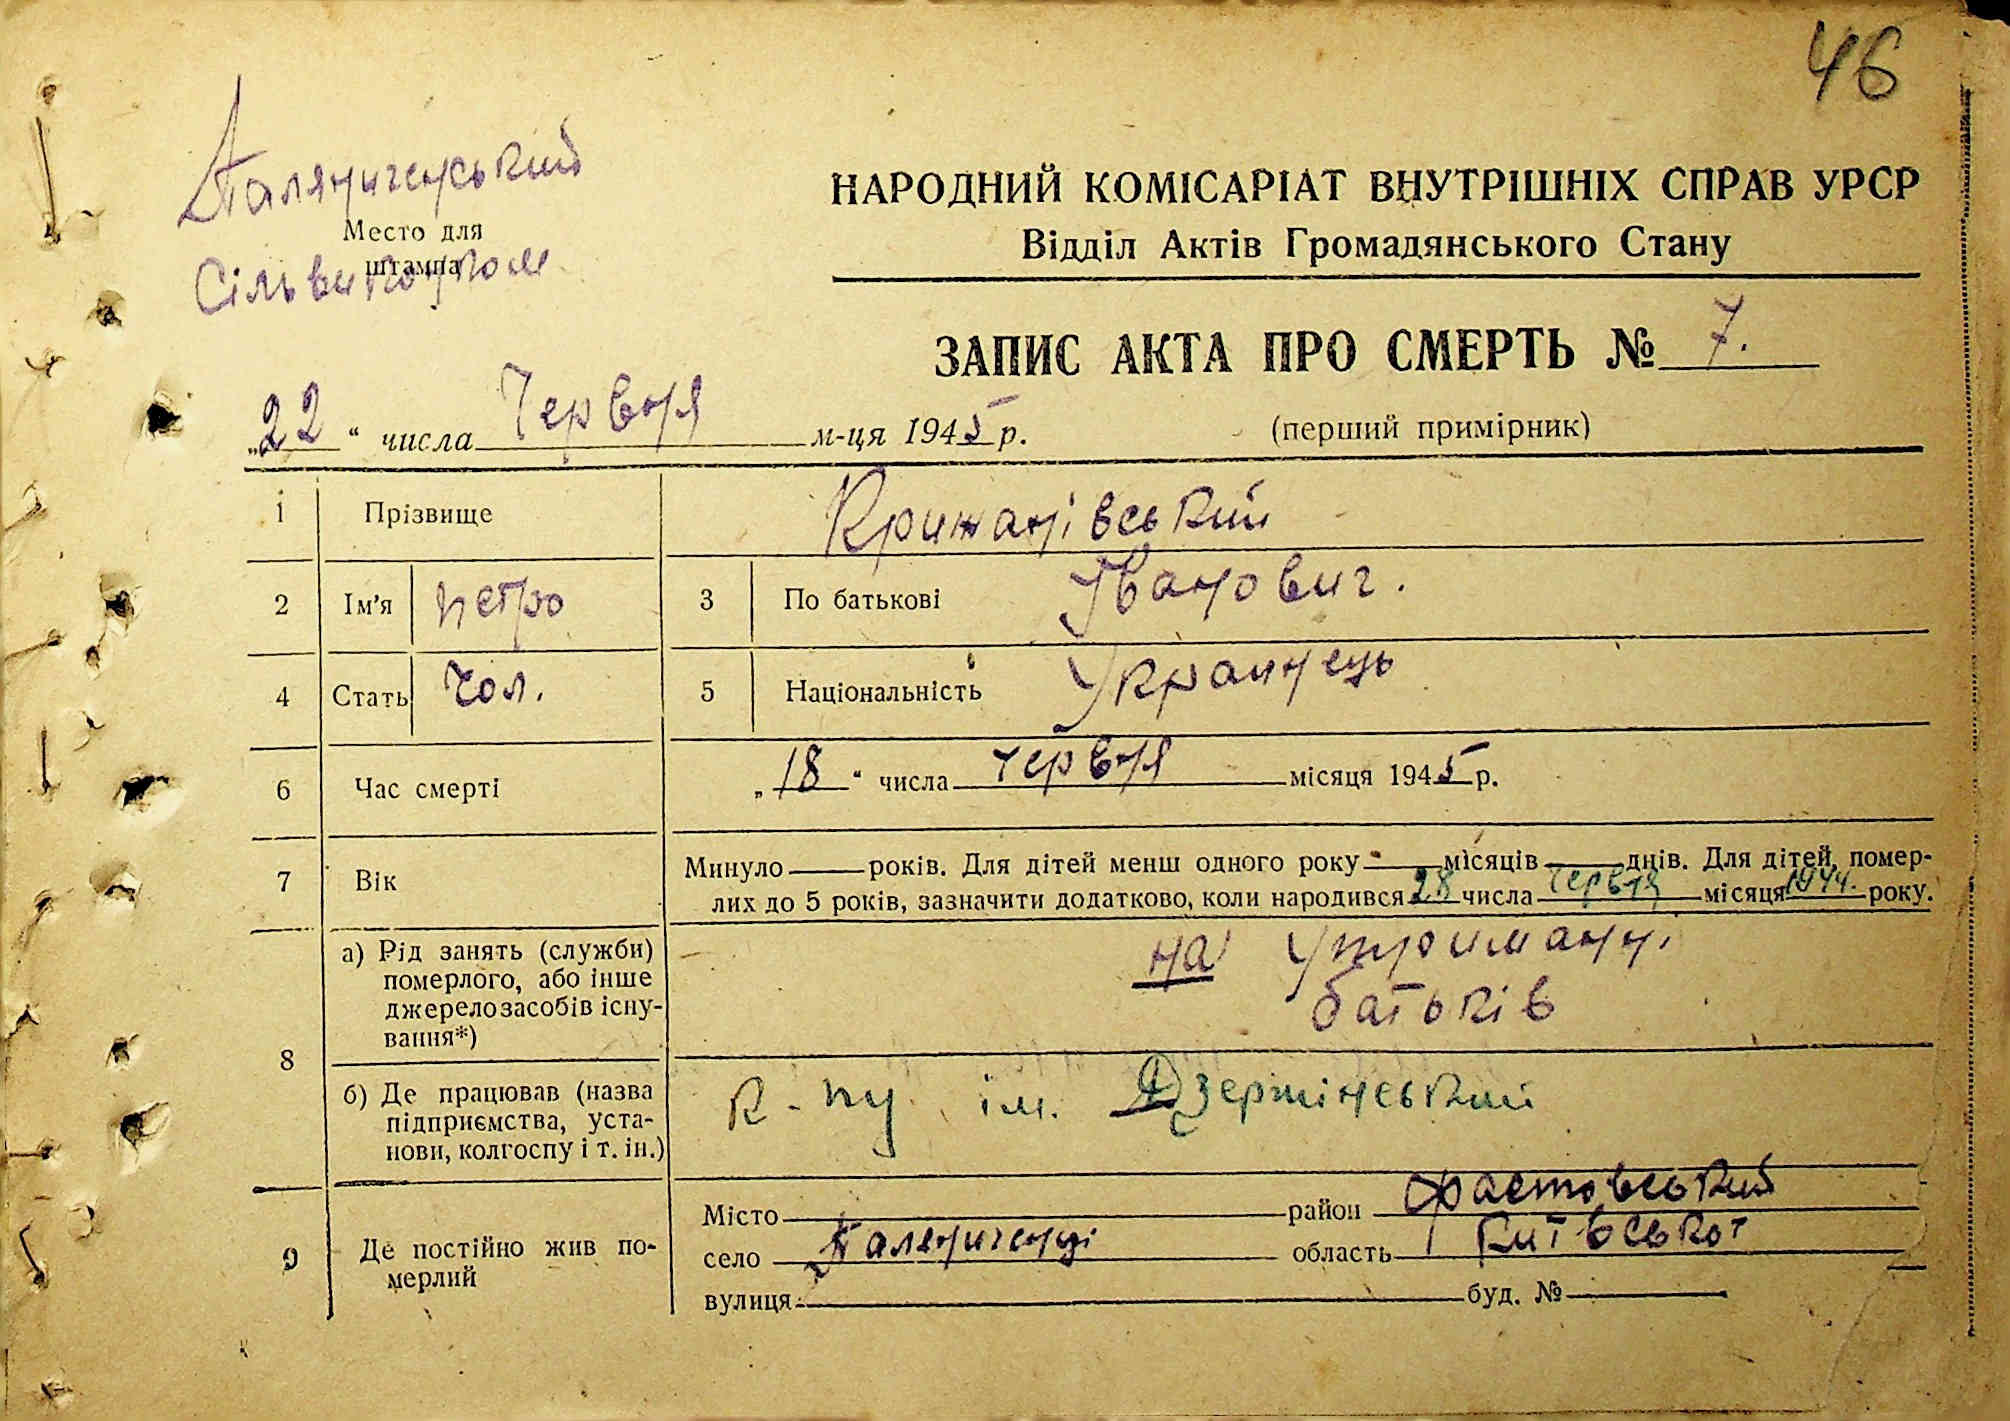 46
Паляниченський
Место для
штампа
Сільвиконком
НАРОДНИЙ КОМІСАРІАТ ВНУТРІШНІХ СПРАВ УРСР
Відділ Актів Громадянського Стану
ЗАПИС АКТА ПРО СМЕРТЬ № 7.
„22“ числа Червня м-ця 1945 р.
(перший примірник)
1 Прізвище Крижанівський
2 Ім'я Петро 3 По батькові Іванович.
4 Стать Чол. 5 Національність Українець
6 Час смерті „18“ числа червня місяця 1945 р.
7 Вік Минуло — років. Для дітей менш одного року — місяців — днів. Для дітей, помер-
лих до 5 років, зазначити додатково, коли народився 28 числа червня місяця 1944. року.
8 а) Рід занять (служби)
померлого, або інше
джерело засобів існу-
вання*)
на утриманні
батьків
б) Де працював (назва
підприємства, уста-
нови, колгоспу і т. ін.)
к-пу ім. Дзержінський
9 Де постійно жив по-
мерлий
Місто район Фастовський
село Паляниченці область Київської
вулиця буд. №